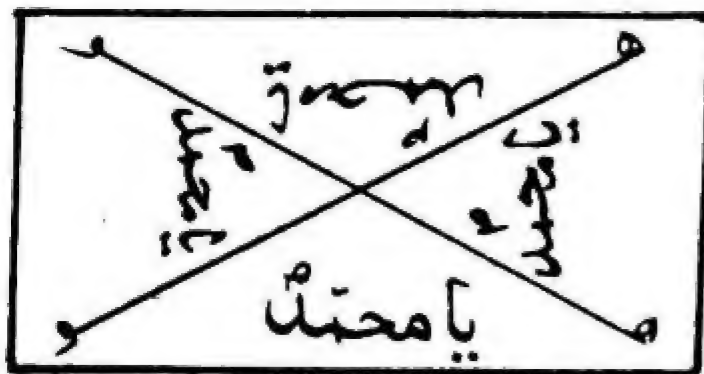 ه و
يا محمد
يا محمد يا محمد
يا محمدٌ
ه و